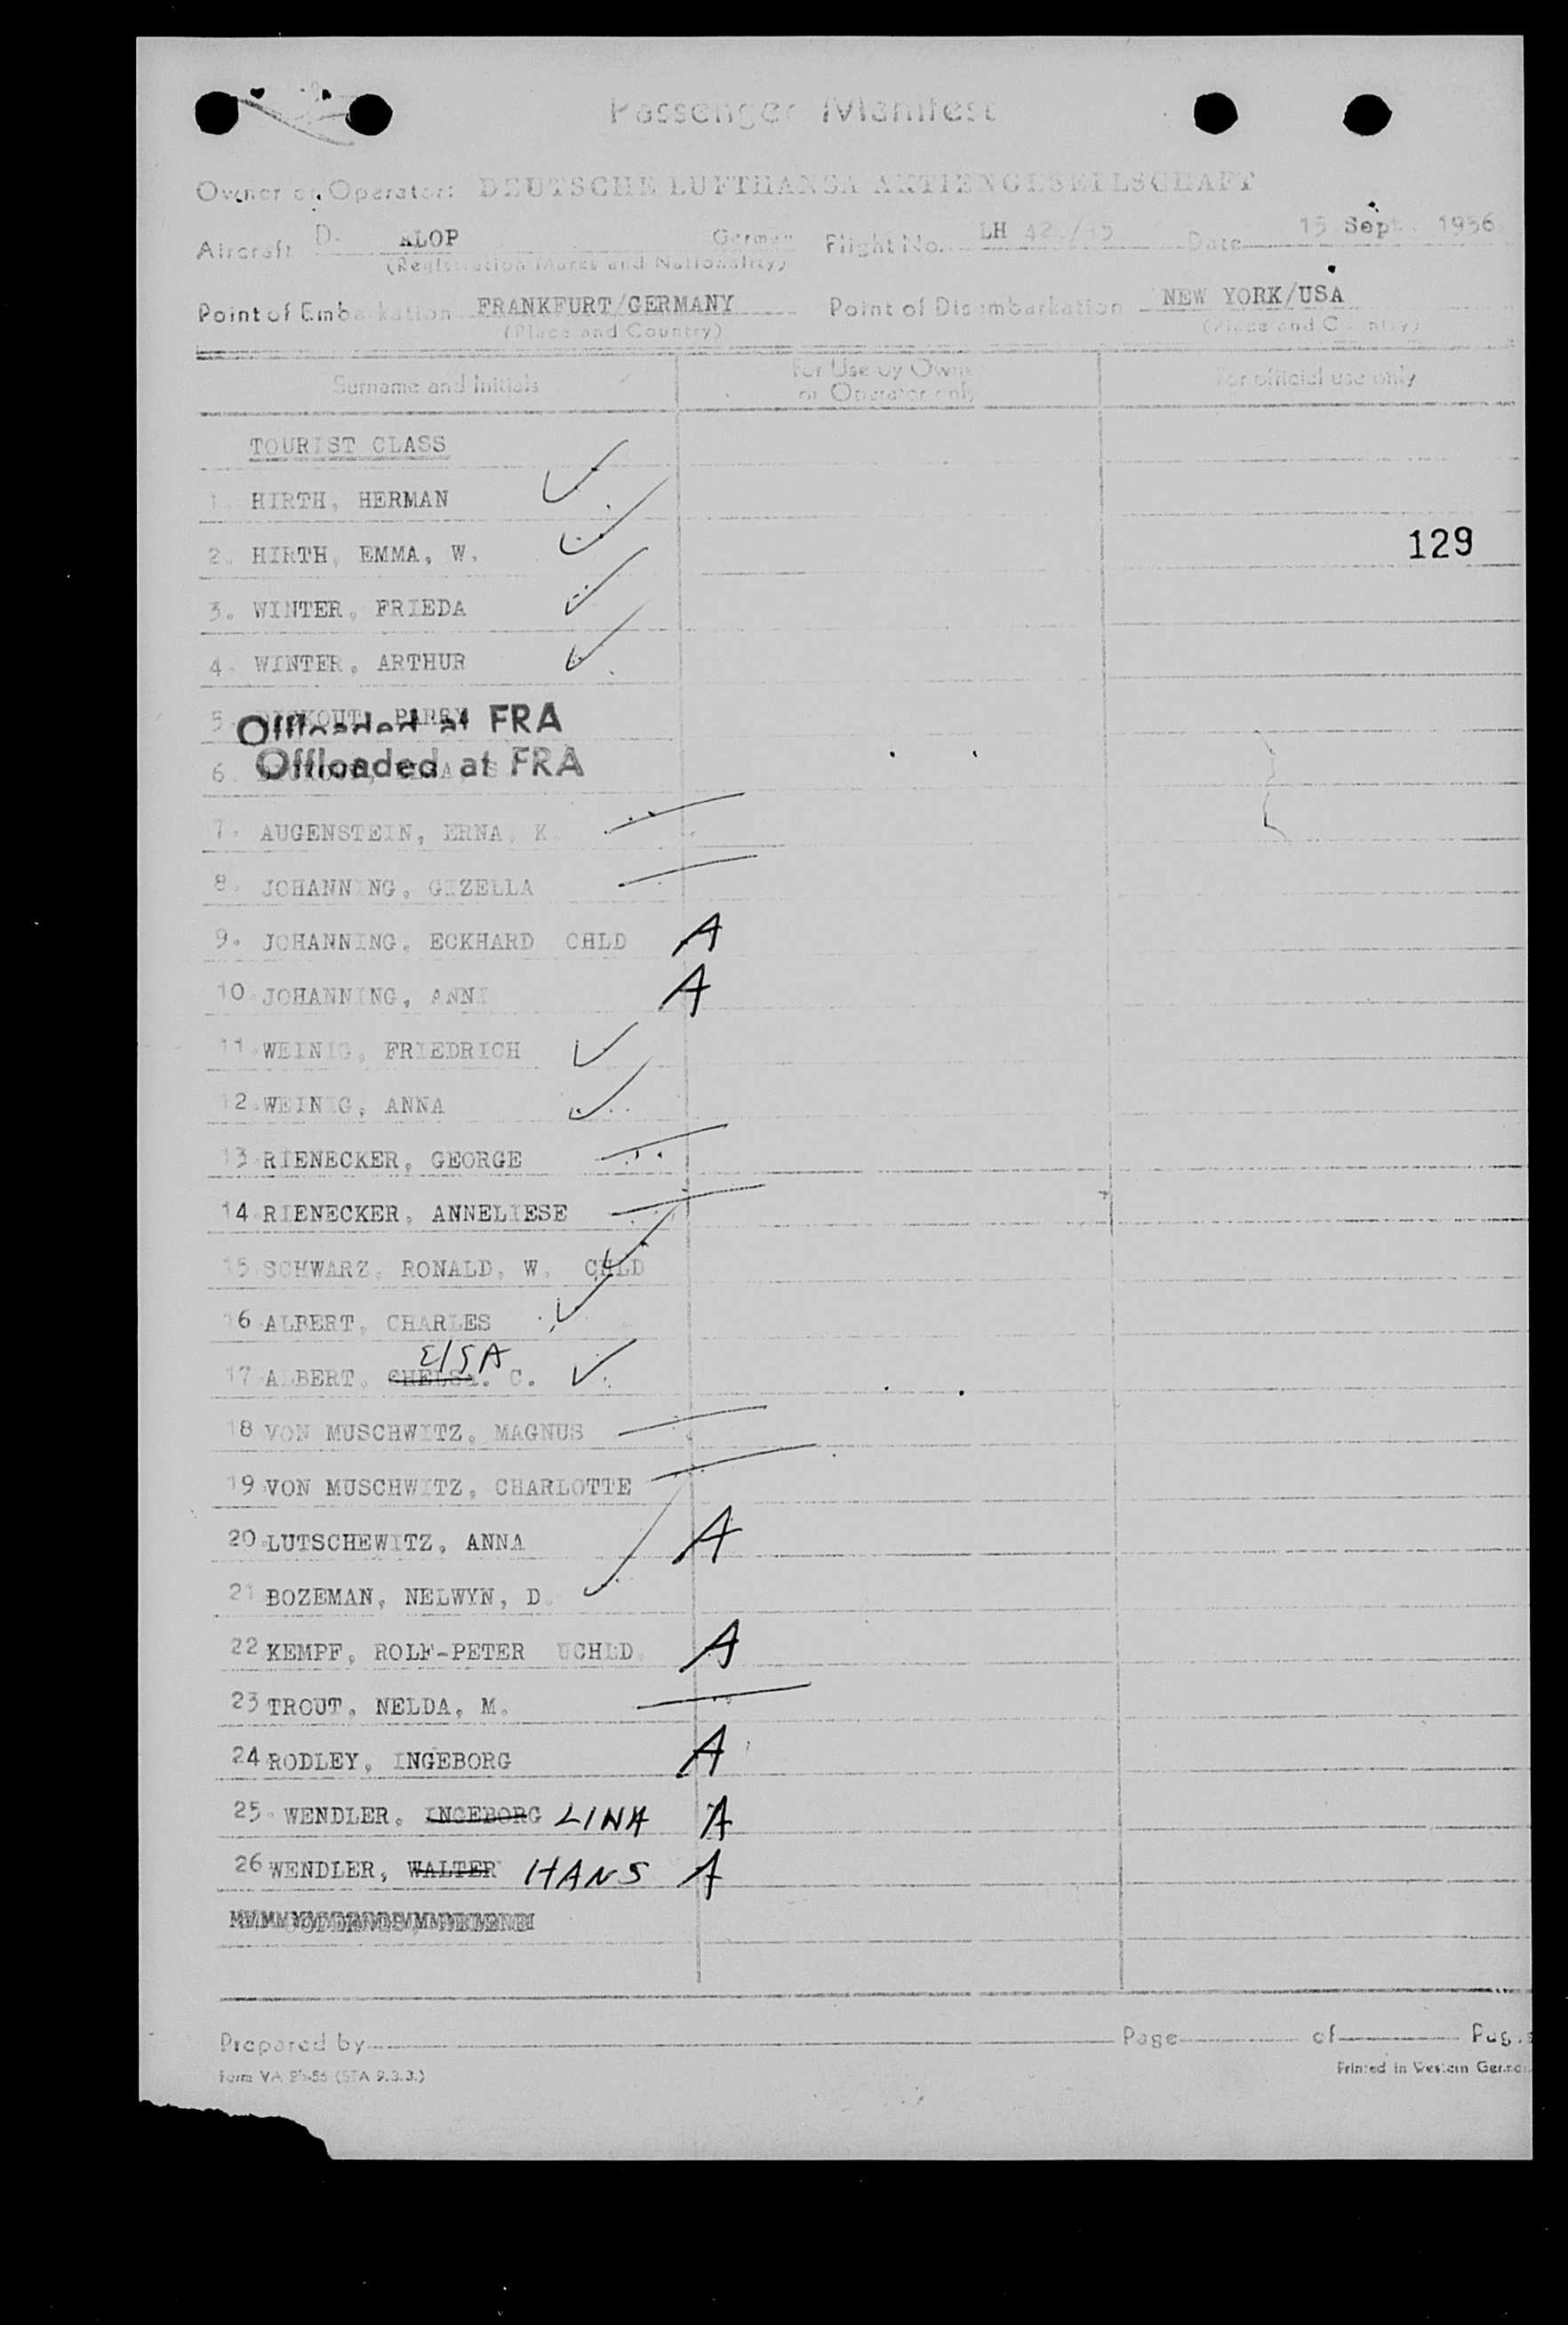 Passenger Manifest
Owner or Operator: DEUTSCHE LUFTHANSA AKTIENGESELLSCHAFT
Aircraft D. ALOP German Flight No. LH Date 15 Sept. 1956
(Registration Marks and Nationality)
Point of Embarkation FRANKFURT/GERMANY Point of Disembarkation NEW YORK/USA
(Place and Country) (Place and Country)
Surname and Initials For Use by Owner or Operator only For official use only
TOURIST CLASS
1. HIRTH, HERMAN
2. HIRTH, EMMA, W. 129
3. WINTER, FRIEDA
4. WINTER, ARTHUR
5.
Offloaded at FRA
6.
Offloaded at FRA
7. AUGENSTEIN, ERNA, K.
8. JOHANNING, GIZELLA
9. JOHANNING, ECKHARD CHLD A
10. JOHANNING, ANNI A
11. WEINIG, FRIEDRICH
12. WEINIG, ANNA
13. RIENECKER, GEORGE
14. RIENECKER, ANNELIESE
15. SCHWARZ, RONALD, W. CHLD
16. ALBERT, CHARLES
17. ALBERT, CHELSA. C. ElSA
18. VON MUSCHWITZ, MAGNUS
19. VON MUSCHWITZ, CHARLOTTE
20. LUTSCHEWITZ, ANNA A
21. BOZEMAN, NELWYN, D.
22. KEMPF, ROLF-PETER UCHLD. A
23. TROUT, NELDA, M.
24. RODLEY, INGEBORG A
25. WENDLER, INGEBORG LINA A
26. WENDLER, WALTER HANS A
Prepared by Page of Pages
Form VA (STA 9.3.3.) Printed in Western Germany